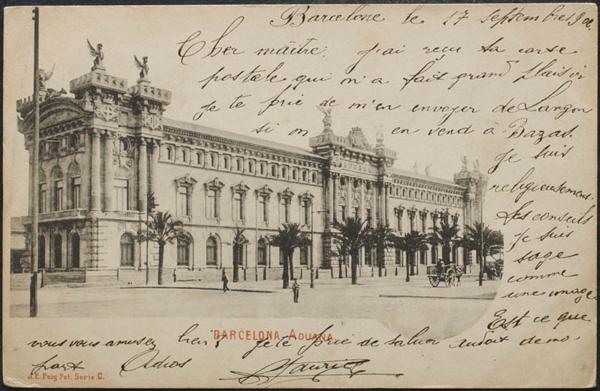 Barcelone le 17 septembre
Cher maître. j'ai reçu ta carte
postale qui m'a fait grand plaisir
Je te prie de m'en envoyer de Langon
si on en vend à Bazas.
Je suis
religieusement
tes conseils
Je suis
sage
comme
une image
Est ce que
vous vous amusez bien? Je te prie de saluer
part Adios Maurice
BARCELONA. ADUANA.
J.E. Puig Fot. Serie C.